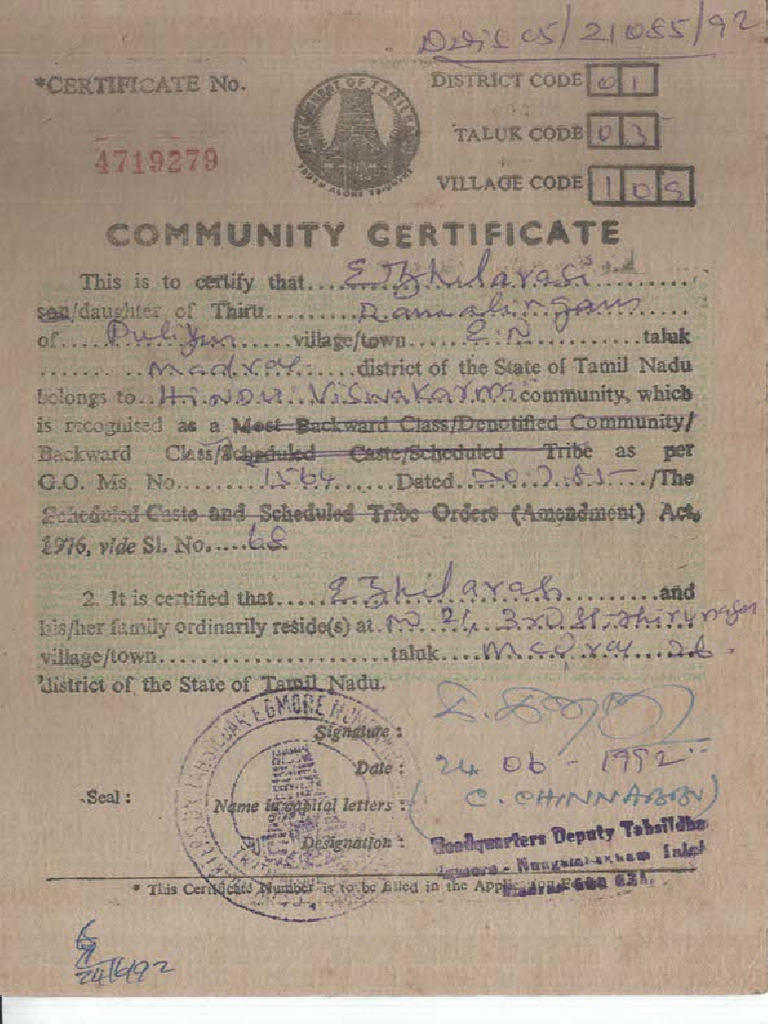 05/21055/92
*CERTIFICATE No.
DISTRICT CODE 01
TALUK CODE 03
4719279
VILLAGE CODE 105
COMMUNITY CERTIFICATE
This is to certify that....Ezhilarasi..........
son/daughter of Thiru..........Ramalingam......
of.....Puliyur........village/town.....E.N..........taluk
..........Madras......district of the State of Tamil Nadu
belongs to..Hindu..Viswakarma community, which
is recognised as a Most Backward Class/Denotified Community/
Backward Class/Scheduled Caste/Scheduled Tribe as per
G.O. Ms. No.........1564.......Dated...20.7.85..../The
Scheduled Caste and Scheduled Tribe Orders (Amendment) Act,
1976, vide Sl. No.....68.
2. It is certified that......Ezhilarasi..........and
his/her family ordinarily reside(s) at. No 21, 3rd St. Thirunagar
village/town.......................taluk....Madras 26.
district of the State of Tamil Nadu.
Signature :
Date : 24 06 - 1992
Seal :
Name in capital letters : (C. CHINNABBU)
Designation : Headquarters Deputy Tahsildar
Egmore - Nungambakkam Taluk
* This Certificate Number is to be filled in the Application